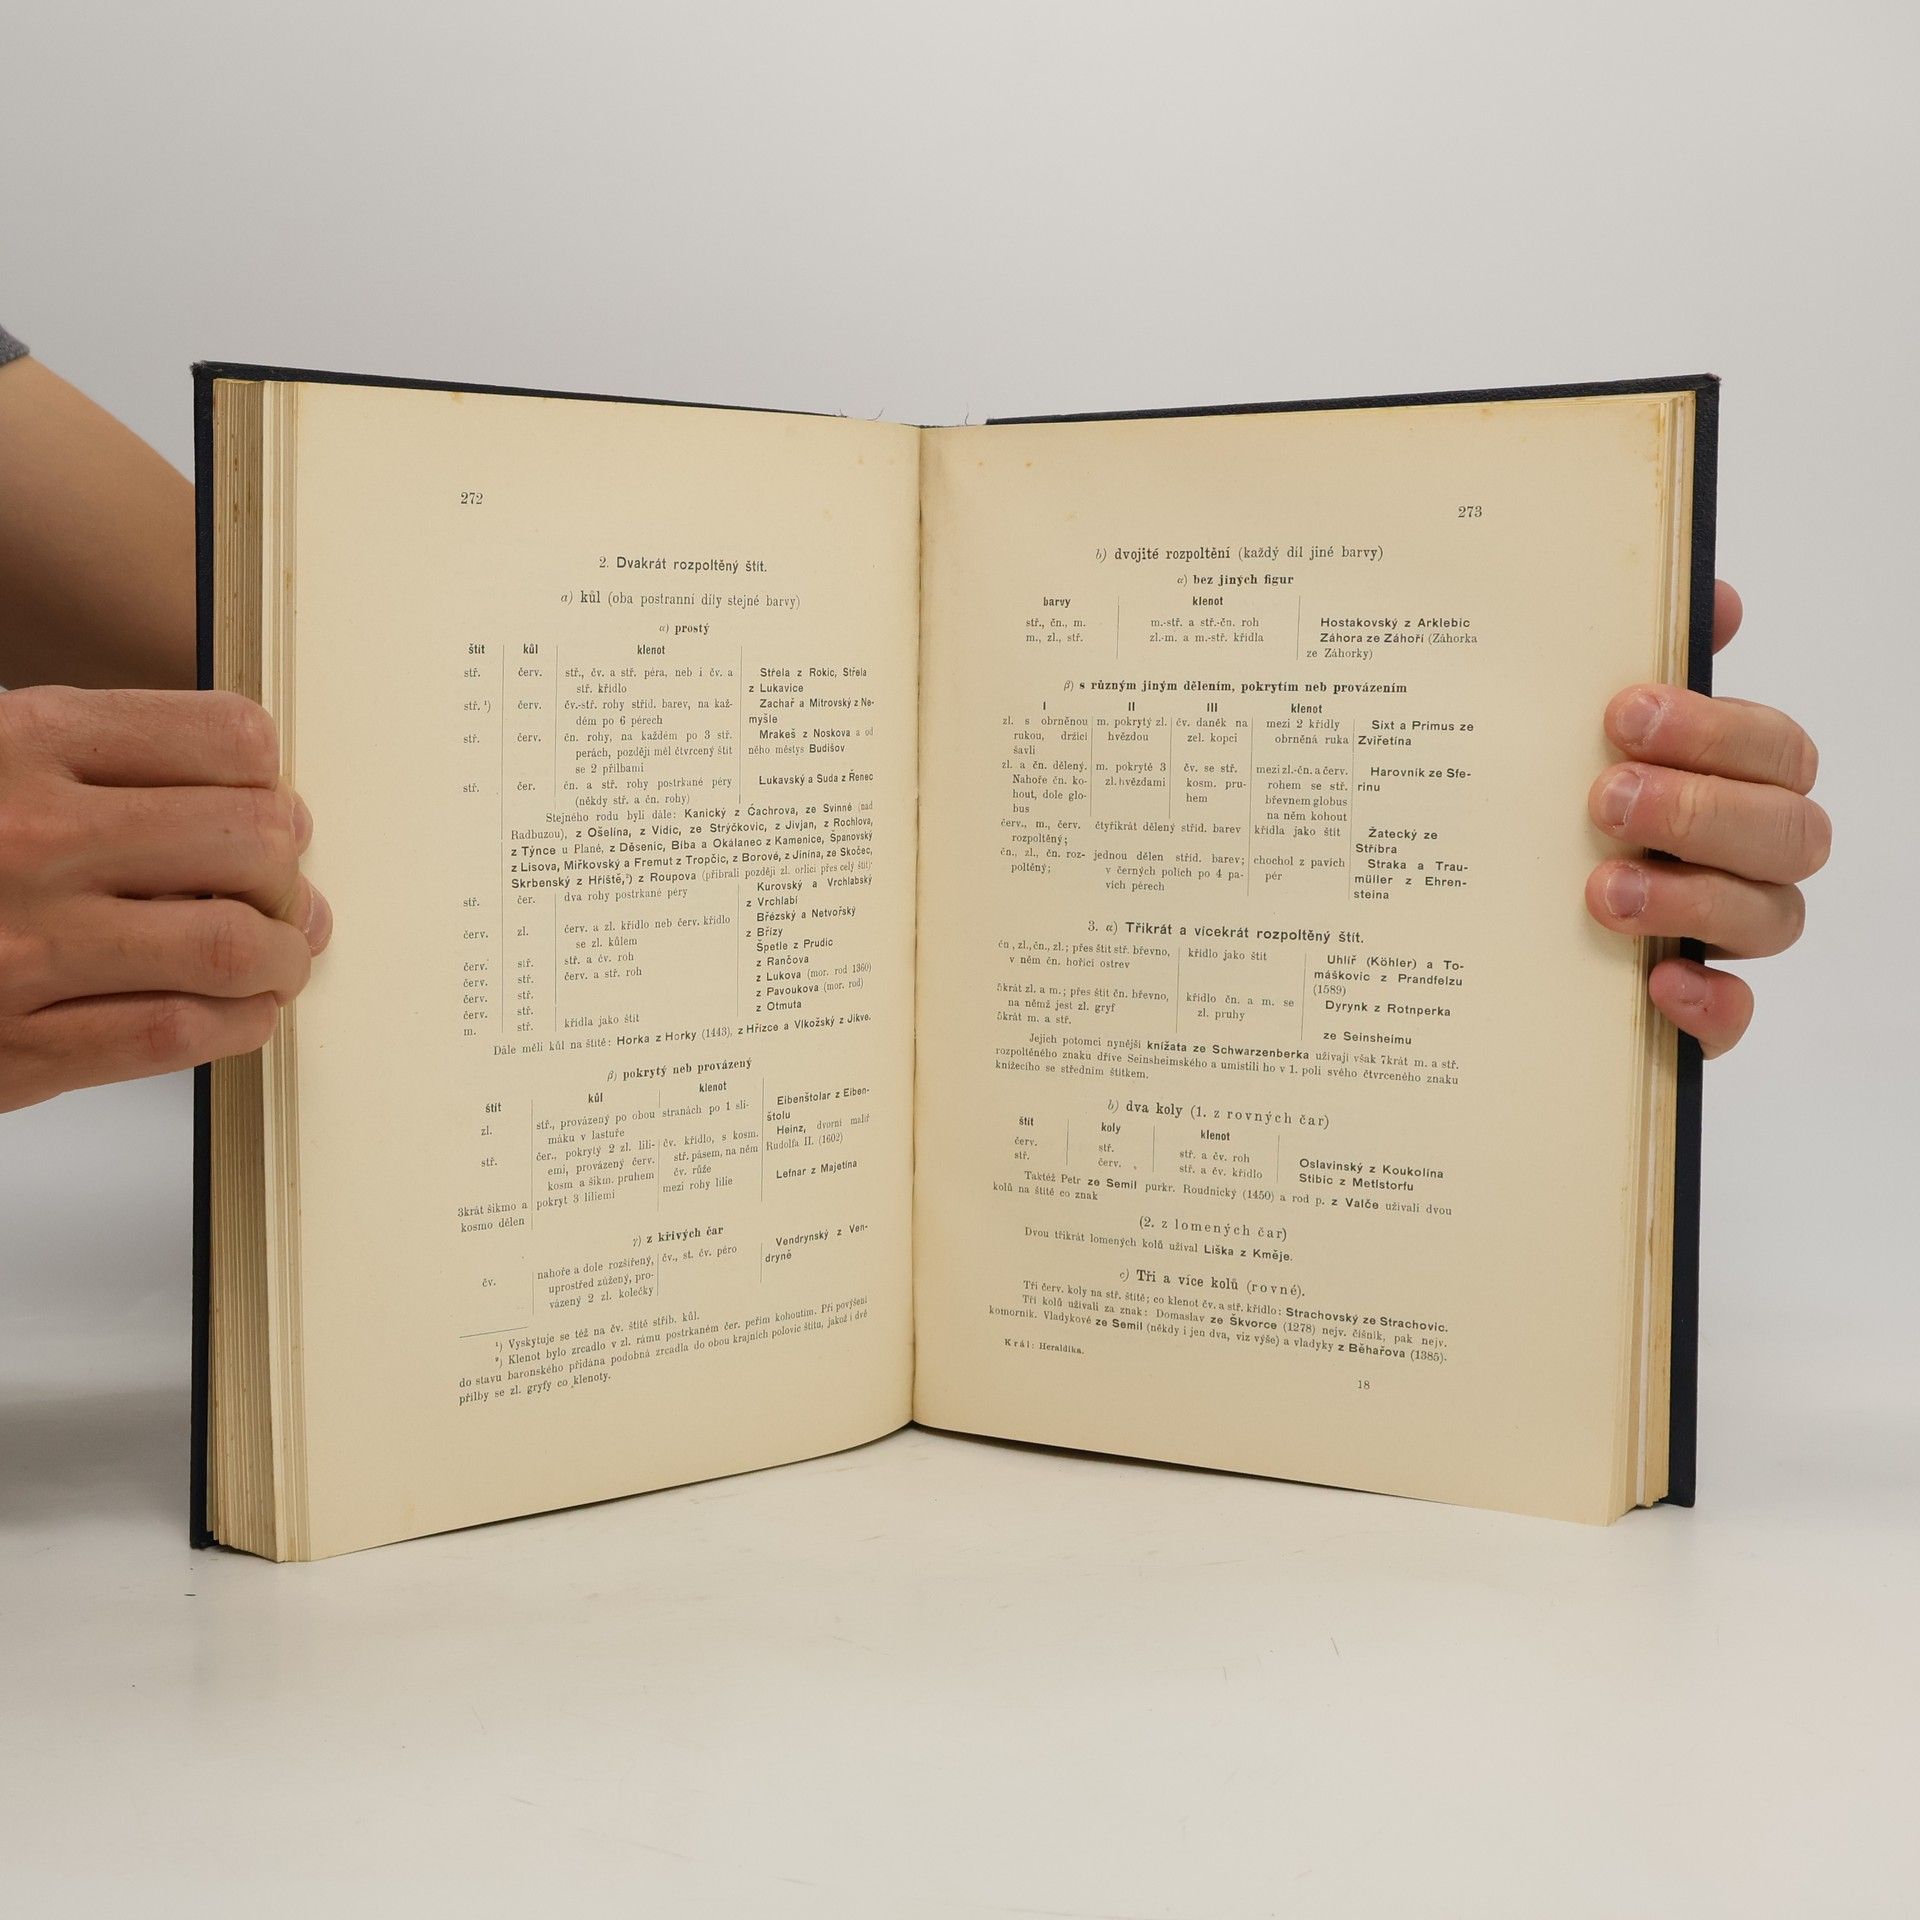 272
2. Dvakrát rozpoltěný štít.
a) kůl (oba postranní díly stejné barvy)
α) prostý
štít kůl klenot
stř. červ. stř., čv. a stř. péra, neb i čv. a Střela z Rokic, Střela
stř. křídlo z Lukavice
stř. ¹) červ. čv.-stř. rohy stříd. barev, na kaž- Zachař a Mitrovský z Ne-
dém po 6 pérech myšle
stř. červ. čn. rohy, na každém po 3 stř. Mrakeš z Noskova a od
perách, později měl čtvrcený štít ného městys Budišov
se 2 přilbami
stř. čer. čn. a stř. rohy postrkané péry Lukavský a Suda z Řenec
(někdy stř. a čn. rohy)
Stejného rodu byli dále: Kanický z Čachrova, ze Svinné (nad
Radbuzou), z Ošelína, z Vidic, ze Strýčkovic, z Jivjan, z Rochlova,
z Týnce u Plané, z Děsenic, Biba a Okálanec z Kamenice, Španovský
z Lisova, Miřkovský a Fremut z Tropčic, z Borové, z Jinína, ze Skočec,
Skrbenský z Hříště,²) z Roupova (přibrali později zl. orlici přes celý štít)
stř. čer. dva rohy postrkané péry Kurovský a Vrchlabský
z Vrchlabí
červ. zl. červ. a zl. křídlo neb červ. křídlo Břézský a Netvořský
se zl. kůlem z Břízy
červ. stř. stř. a čv. roh Špetle z Prudic
červ. stř. červ. a stř. roh z Rančova
červ. stř. z Lukova (mor. rod 1360)
červ. stř. z Pavoukova (mor. rod)
m. stř. křídla jako štít z Otmuta
Dále měli kůl na štítě: Horka z Horky (1443), z Hřízce a Vlkožský z Jikve.
β) pokrytý neb provázený
štít kůl klenot
zl. stř., provázený po obou stranách po 1 sli- Eibenštolar z Eiben-
máku v lastuře štolu
stř. čer., pokrytý 2 zl. lili- čv. křídlo, s kosm. Heinz, dvorní malíř
emi, provázený červ. stř. pásem, na něm Rudolfa II. (1602)
kosm a šikm. pruhem čv. růže
3krát šikmo a pokryt 3 liliemi mezi rohy lilie Lefnar z Majetína
kosmo dělen
γ) z křivých čar
čv. nahoře a dole rozšířený, čv., st. čv. péro Vendrynský z Ven-
uprostřed zúžený, pro- dryně
vázený 2 zl. kolečky
¹) Vyskytuje se též na čv. štítě stříb. kůl.
²) Klenot bylo zrcadlo v zl. rámu postrkaném čer. peřím kohoutím. Při povýšení
do stavu baronského přidána podobná zrcadla do obou krajních polovic štítu, jakož i dvě
přilby se zl. gryfy co klenoty.
273
b) dvojité rozpoltění (každý díl jiné barvy)
α) bez jiných figur
barvy klenot
stř., čn., m. m.-stř. a stř.-čn. roh Hostakovský z Arklebic
m., zl., stř. zl.-m. a m.-stř. křídla Záhora ze Záhoří (Záhorka
ze Záhorky)
β) s různým jiným dělením, pokrytím neb provázením
I II III klenot
zl. s obrněnou m. pokrytý zl. čv. daněk na mezi 2 křídly Sixt a Primus ze
rukou, držící hvězdou zel. kopci obrněná ruka Zvířetína
šavli
zl. a čn. dělený. m. pokryté 3 čv. se stř. mezi zl.-čn. a červ. Harovník ze Sfe-
Nahoře čn. ko- zl. hvězdami kosm. pru- rohem se stř. rinu
hout, dole glo- hem břevnem globus
bus na něm kohout
červ., m., červ. čtyřikrát dělený stříd. barev křídla jako štít Žatecký ze
rozpoltěný; Stříbra
čn., zl., čn. roz- jednou dělen stříd. barev; chochol z pavích Straka a Trau-
poltěný; v černých polích po 4 pa- pér müller z Ehren-
vích pérech steina
3. α) Třikrát a vícekrát rozpoltěný štít.
čn., zl., čn., zl.; přes štít stř. břevno, křídlo jako štít Uhlíř (Köhler) a To-
v něm čn. hořící ostrev máškovic z Prandfelzu
(1589)
5krát zl. a m.; přes štít čn. břevno, křídlo čn. a m. se Dyrynk z Rotnperka
na němž jest zl. gryf zl. pruhy
5krát m. a stř. ze Seinsheimu
Jejich potomci nynější knížata ze Schwarzenberka užívají však 7krát m. a stř.
rozpoltěného znaku dříve Seinsheimského a umístili ho v 1. poli svého čtvrceného znaku
knížecího se středním štítkem.
b) dva koly (1. z rovných čar)
štít koly klenot
červ. stř. stř. a čv. roh Oslavinský z Koukolína
stř. červ. stř. a čv. křídlo Stibic z Metlstorfu
Taktéž Petr ze Semil purkr. Roudnický (1450) a rod p. z Valče užívali dvou
kolů na štítě co znak
(2. z lomených čar)
Dvou třikrát lomených kolů užíval Liška z Kměje.
c) Tři a více kolů (rovné).
Tři červ. koly na stř. štítě; co klenot čv. a stř. křídlo: Strachovský ze Strachovic.
Tři kolů užívali za znak: Domaslav ze Škvorce (1278) nejv. číšník, pak nejv.
komorník. Vladykové ze Semil (někdy i jen dva, viz výše) a vladyky z Běhařova (1385).
Král: Heraldika.
18